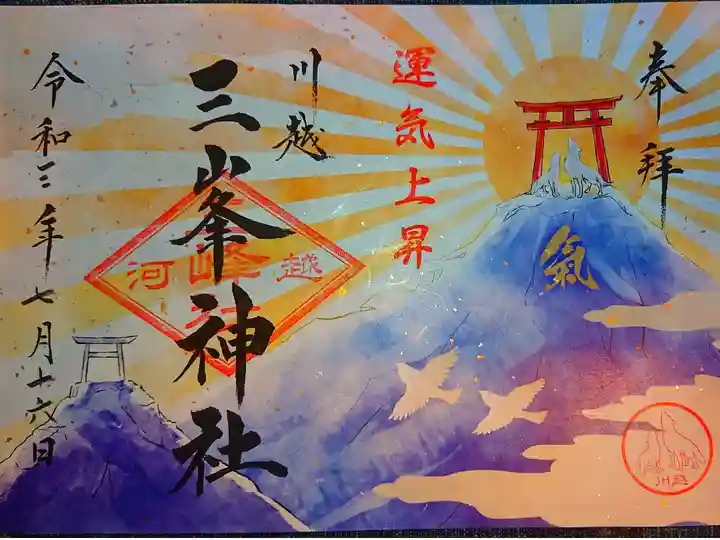 奉拝
氣
運気上昇
川越
三峯神社
越
峰
河
令和三年七月十六日
川越